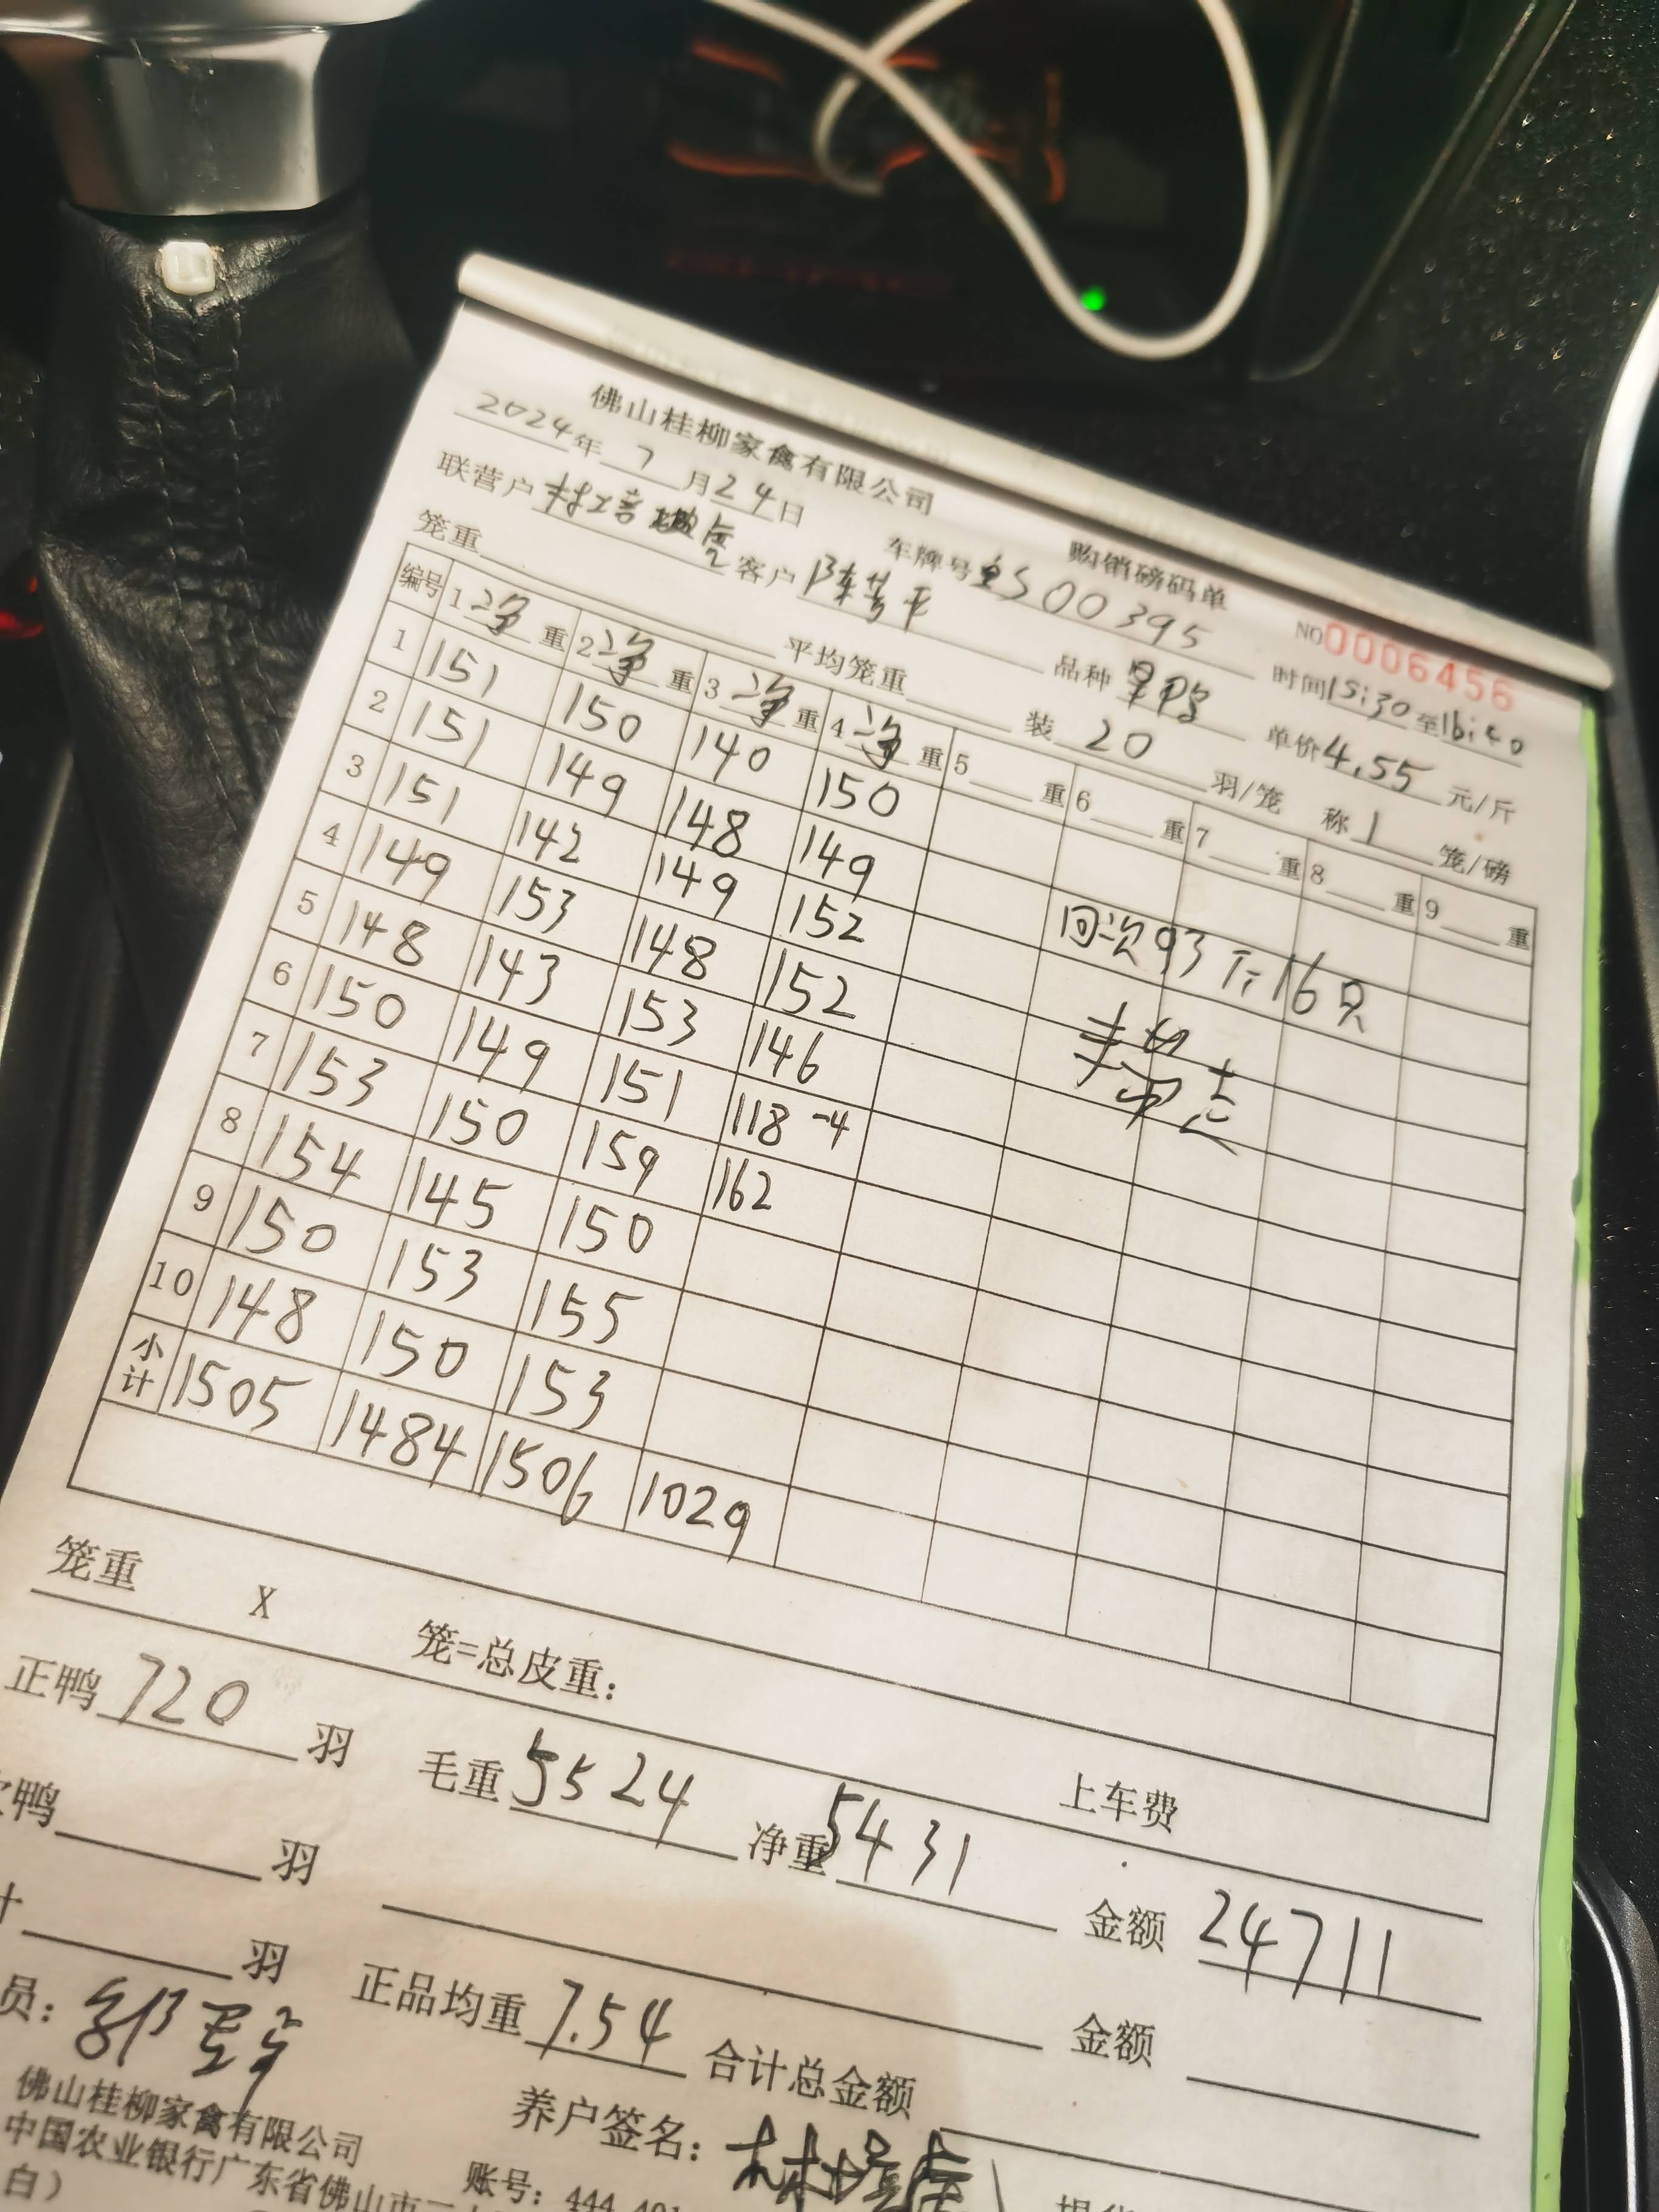 佛山桂柳家禽有限公司 购销磅码单 NO0006456
2024年7月24日 车牌号 S00395 时间15:30至16:40
联营户 客户 品种 单价4.55元/斤
笼重 平均笼重 装20羽/笼 称1笼/磅
编号 1净重 2净重 3净重 4净重 5重 6重 7重 8重 9重
1 151 150 140 150
2 151 149 148 149
3 151 142 149 152 回次93斤16只
4 149 153 148 152
5 148 143 153 146
6 150 149 151 118 -4
7 153 150 159 162
8 154 145 150
9 150 153 155
10 148 150 153
小计 1505 1484 1506 1029
笼重 X 笼=总皮重:
正鸭720羽 毛重5524 净重5431 上车费
鸭 羽 金额24711
羽 正品均重7.54 合计总金额 金额
员: 养户签名:
佛山桂柳家禽有限公司
中国农业银行广东省佛山市 账号: 444
白)